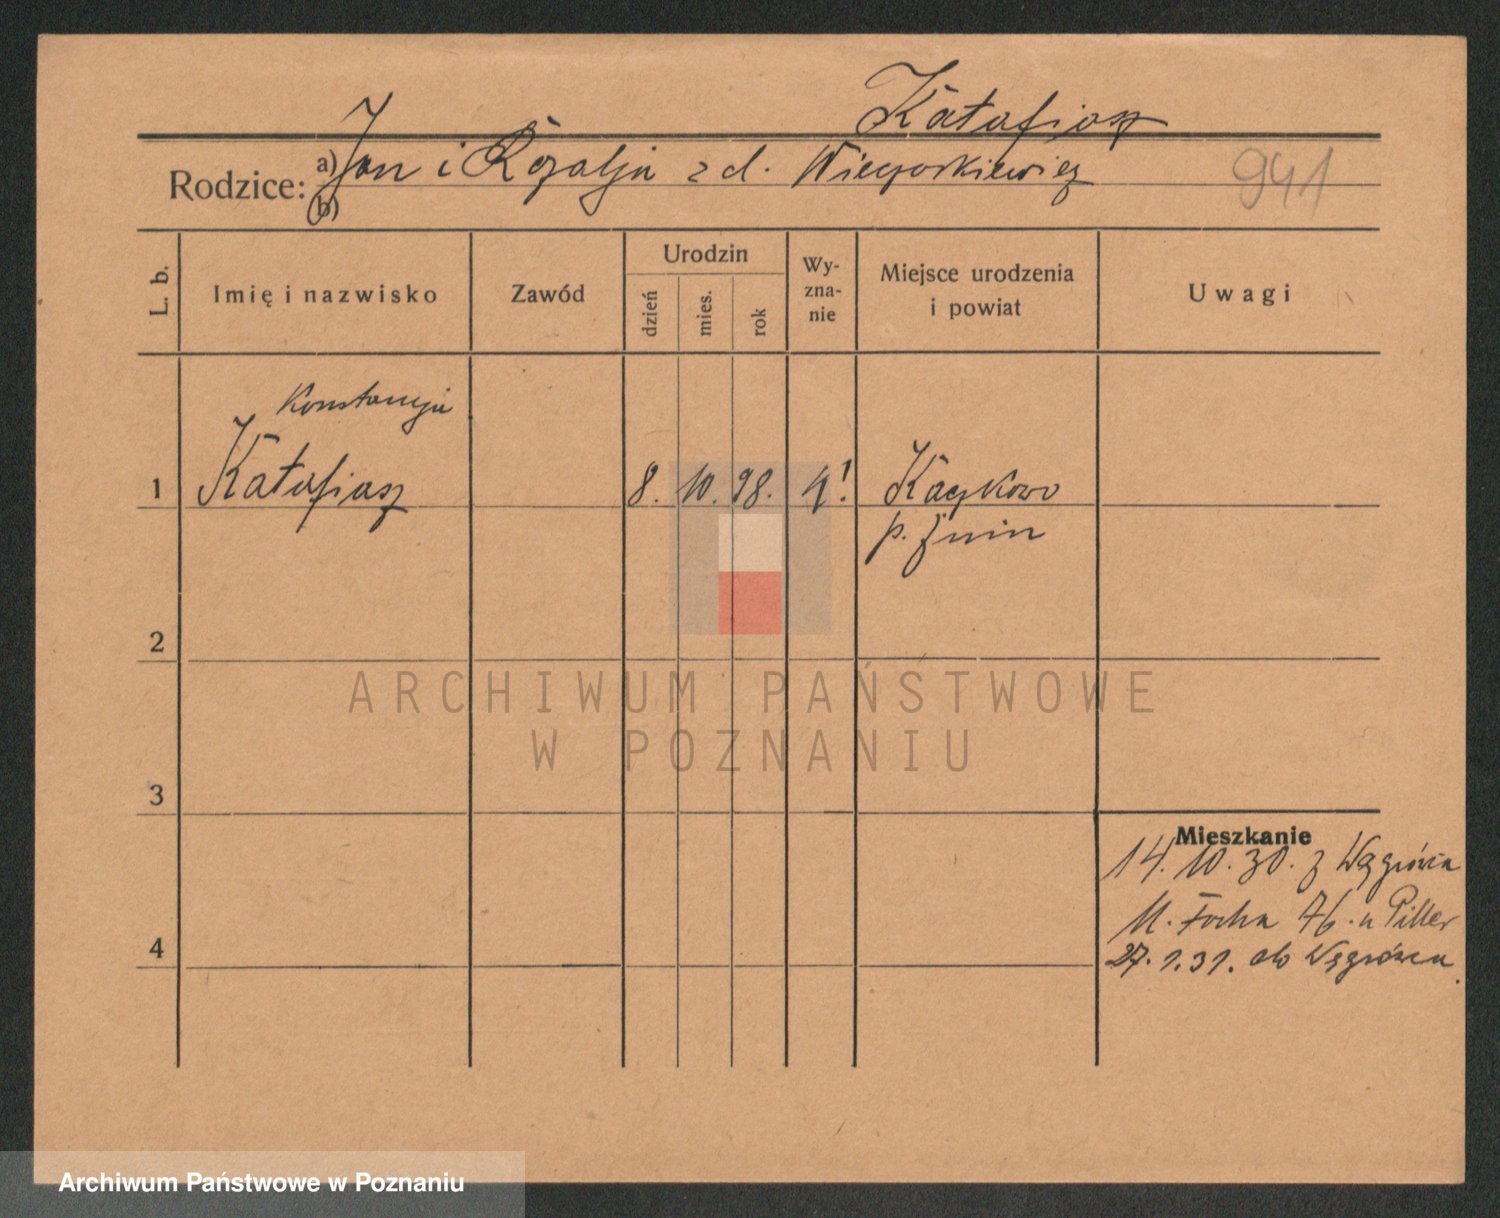 Katafiasz
Rodzice: a) Jan i Rozalja z d. Wieczorkiewicz
b)
941
L. b.
Imię i nazwisko
Zawód
Urodzin
dzień
mies.
rok
Wy-
zna-
nie
Miejsce urodzenia
i powiat
Uwagi
Konstancja
1 Katafiasz 8. 10. 98. Kaczkowo
p. Żnin
2
ARCHIWUM PAŃSTWOWE
W POZNANIU
3
Mieszkanie
14. 10. 30. z Wągrówca
M. Focha 76. u Piller
4
27. 1. 31. do Wągrówca.
Archiwum Państwowe w Poznaniu